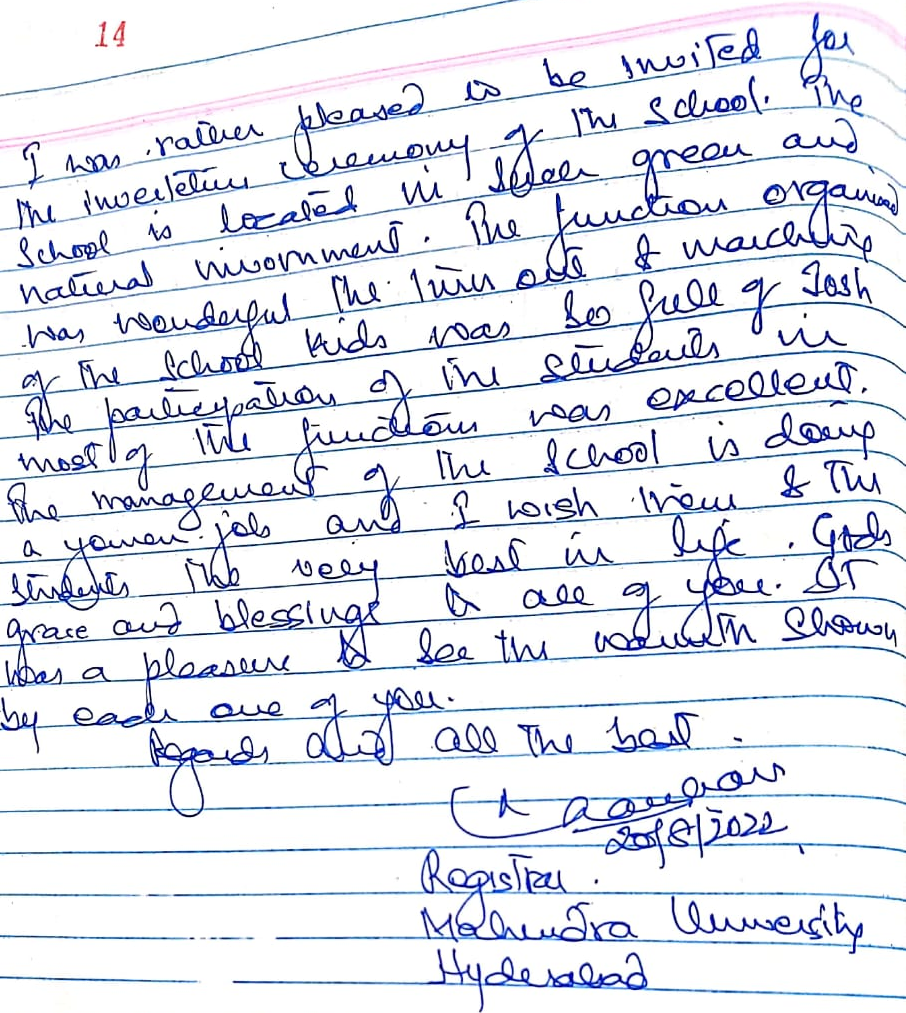 14
I was rather pleased to be invited for
the investeture ceremony of the school. The
School is located in sheer green and
natural invornment. The function organised
was wonderful The turn out & marching
of the School kids was so full of Josh
The participation of the students in
most of the functions was excellent.
The management of the School is doing
a yomen job and I wish them & the
students the very best in life. Gods
grace and blessings to all of you. It
was a pleasure to see the warmth shown
by each one of you.
Regards and all the best.
20/8/2022
Registrar.
Mahendra University
Hyderabad